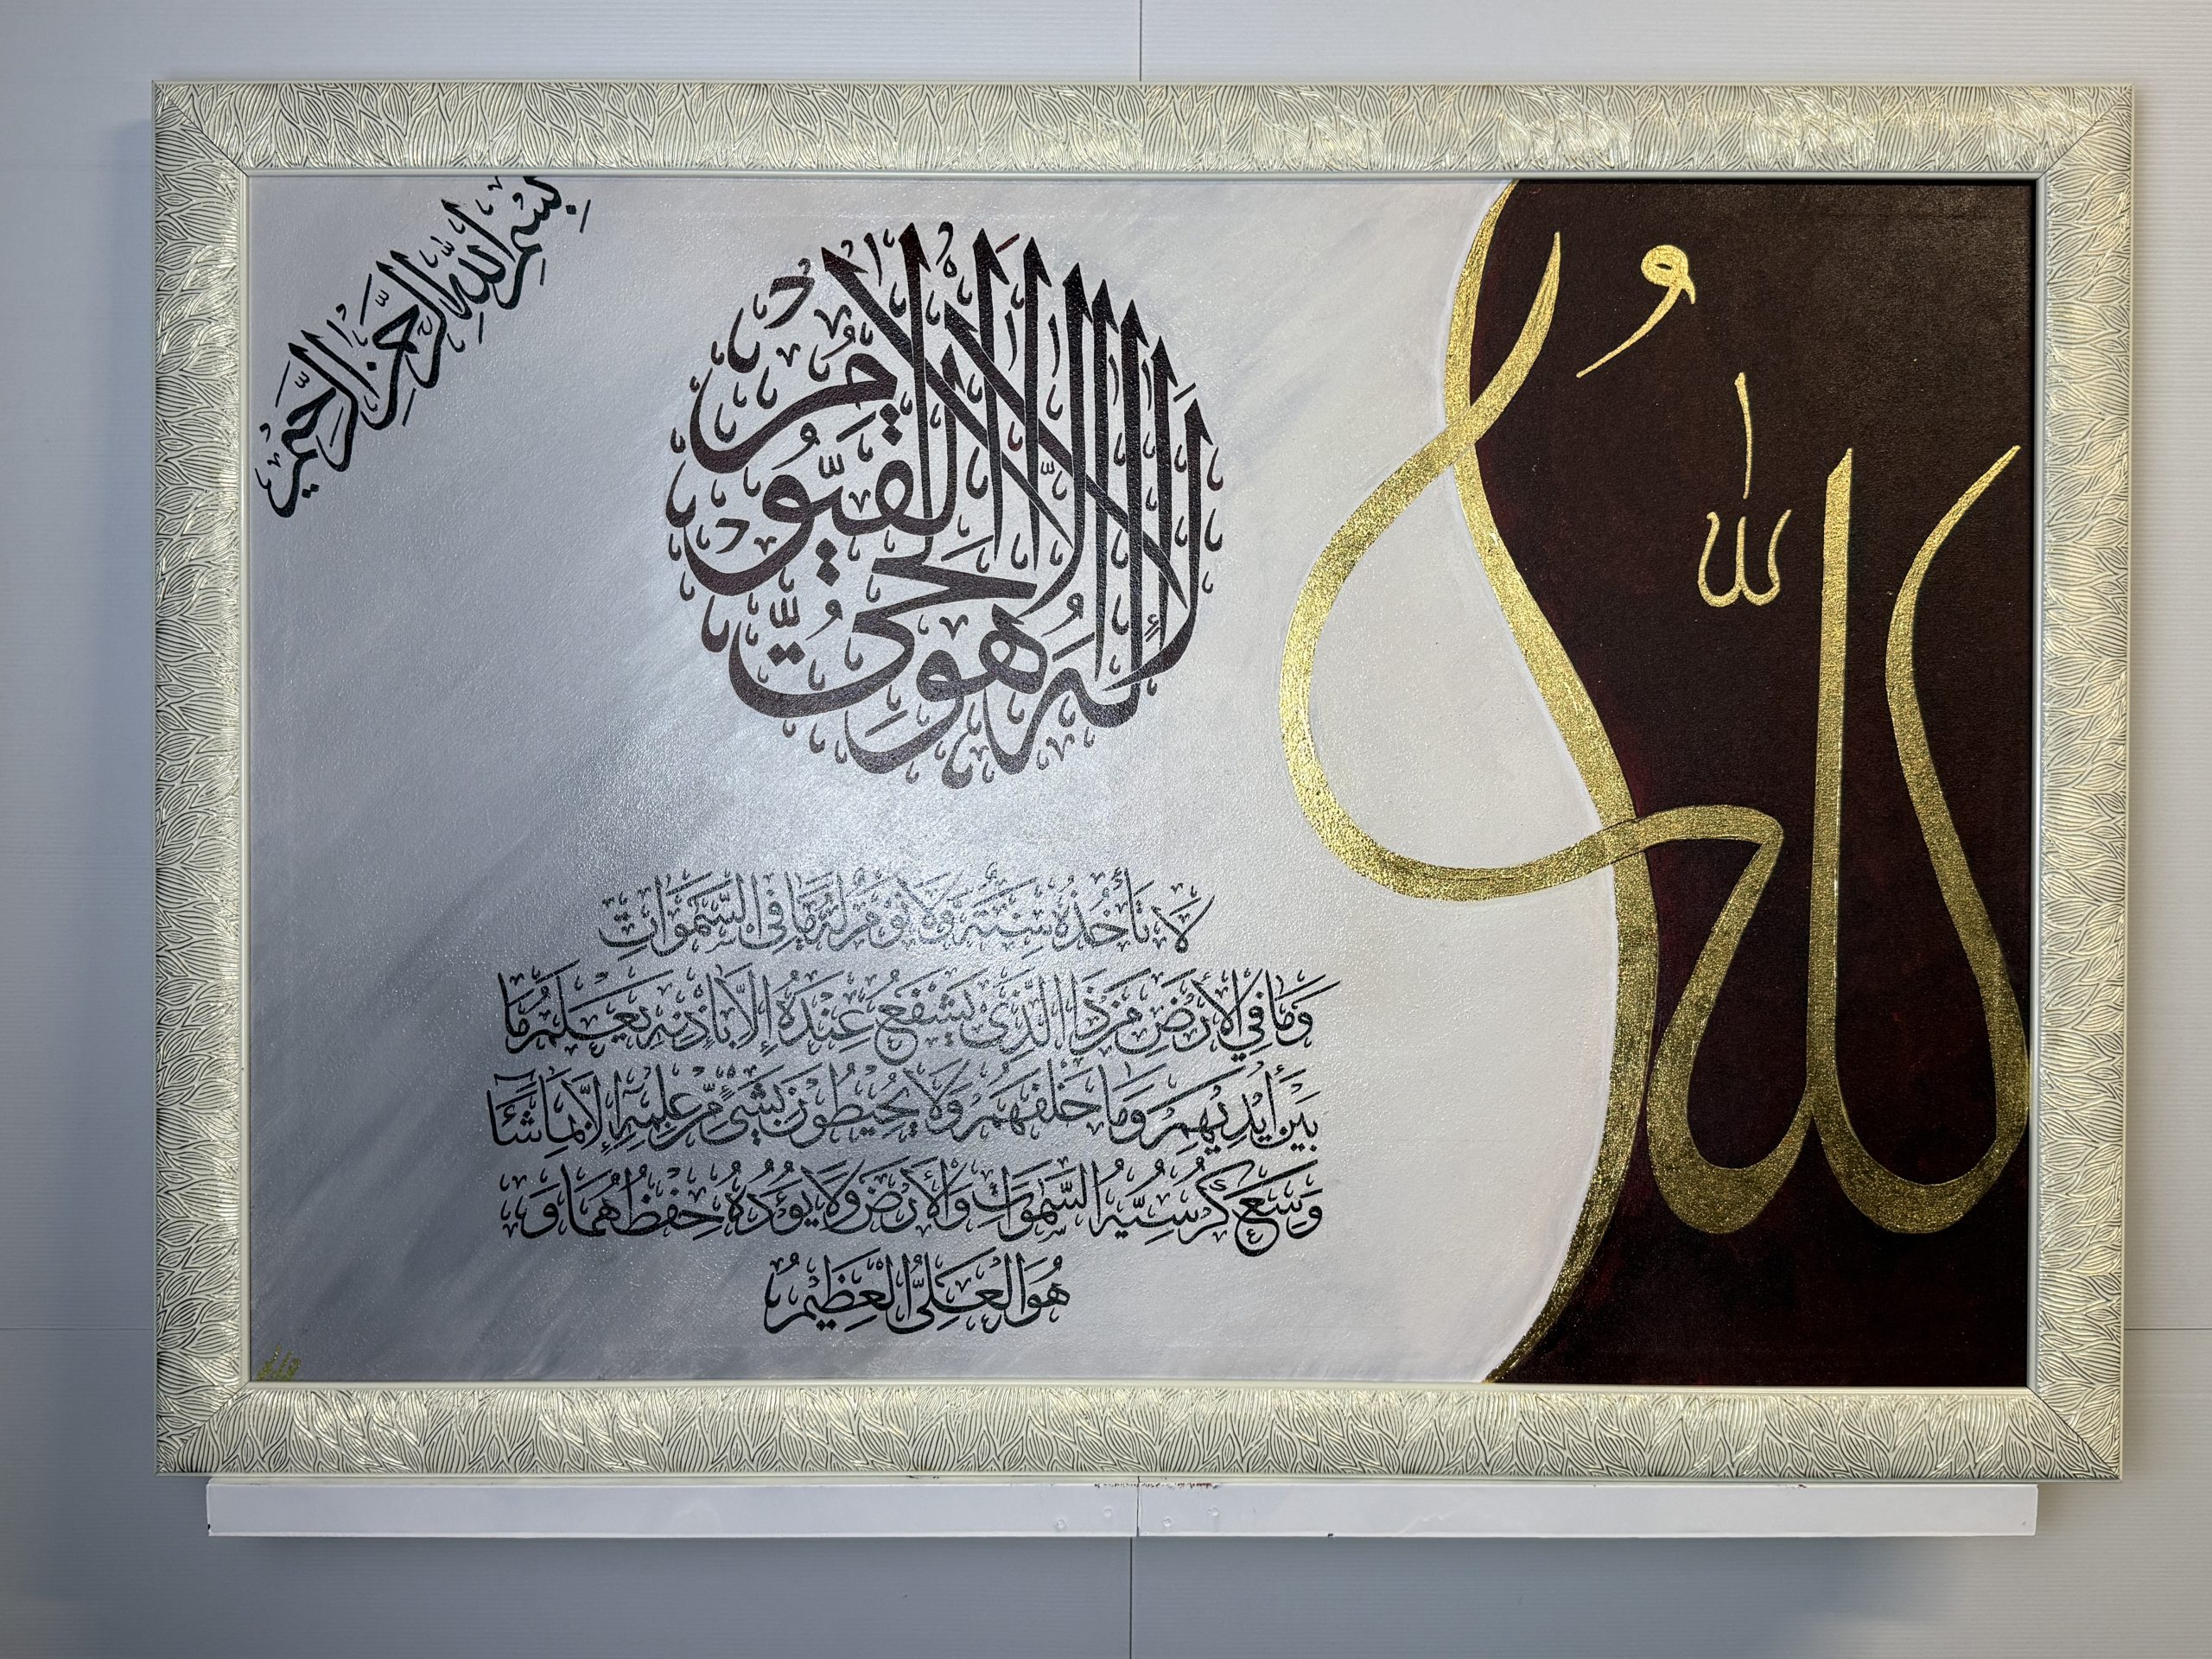 بِسْمِ اللهِ الرَّحْمٰنِ الرَّحِيْمِ
اللهُ
لَا إِلٰهَ إِلَّا هُوَ الْحَيُّ الْقَيُّومُ
لَا تَأْخُذُهُ سِنَةٌ وَلَا نَوْمٌ لَهُ مَا فِي السَّمَوَاتِ
وَمَا فِي الْأَرْضِ مَنْ ذَا الَّذِي يَشْفَعُ عِنْدَهُ إِلَّا بِإِذْنِهِ يَعْلَمُ مَا
بَيْنَ أَيْدِيهِمْ وَمَا خَلْفَهُمْ وَلَا يُحِيطُونَ بِشَيْءٍ مِّنْ عِلْمِهِ إِلَّا بِمَا شَآءَ
وَسِعَ كُرْسِيُّهُ السَّمَوَاتِ وَالْأَرْضَ وَلَا يَؤُدُهُ حِفْظُهُمَا وَ
هُوَ الْعَلِيُّ الْعَظِيمُ